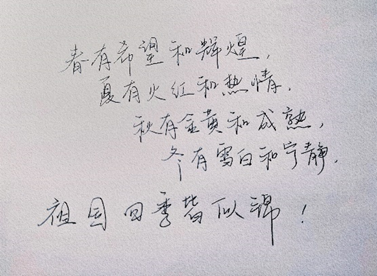 春有希望和辉煌，
夏有火红和热情，
秋有金黄和成熟，
冬有雪白和宁静。
祖国四季皆似锦！